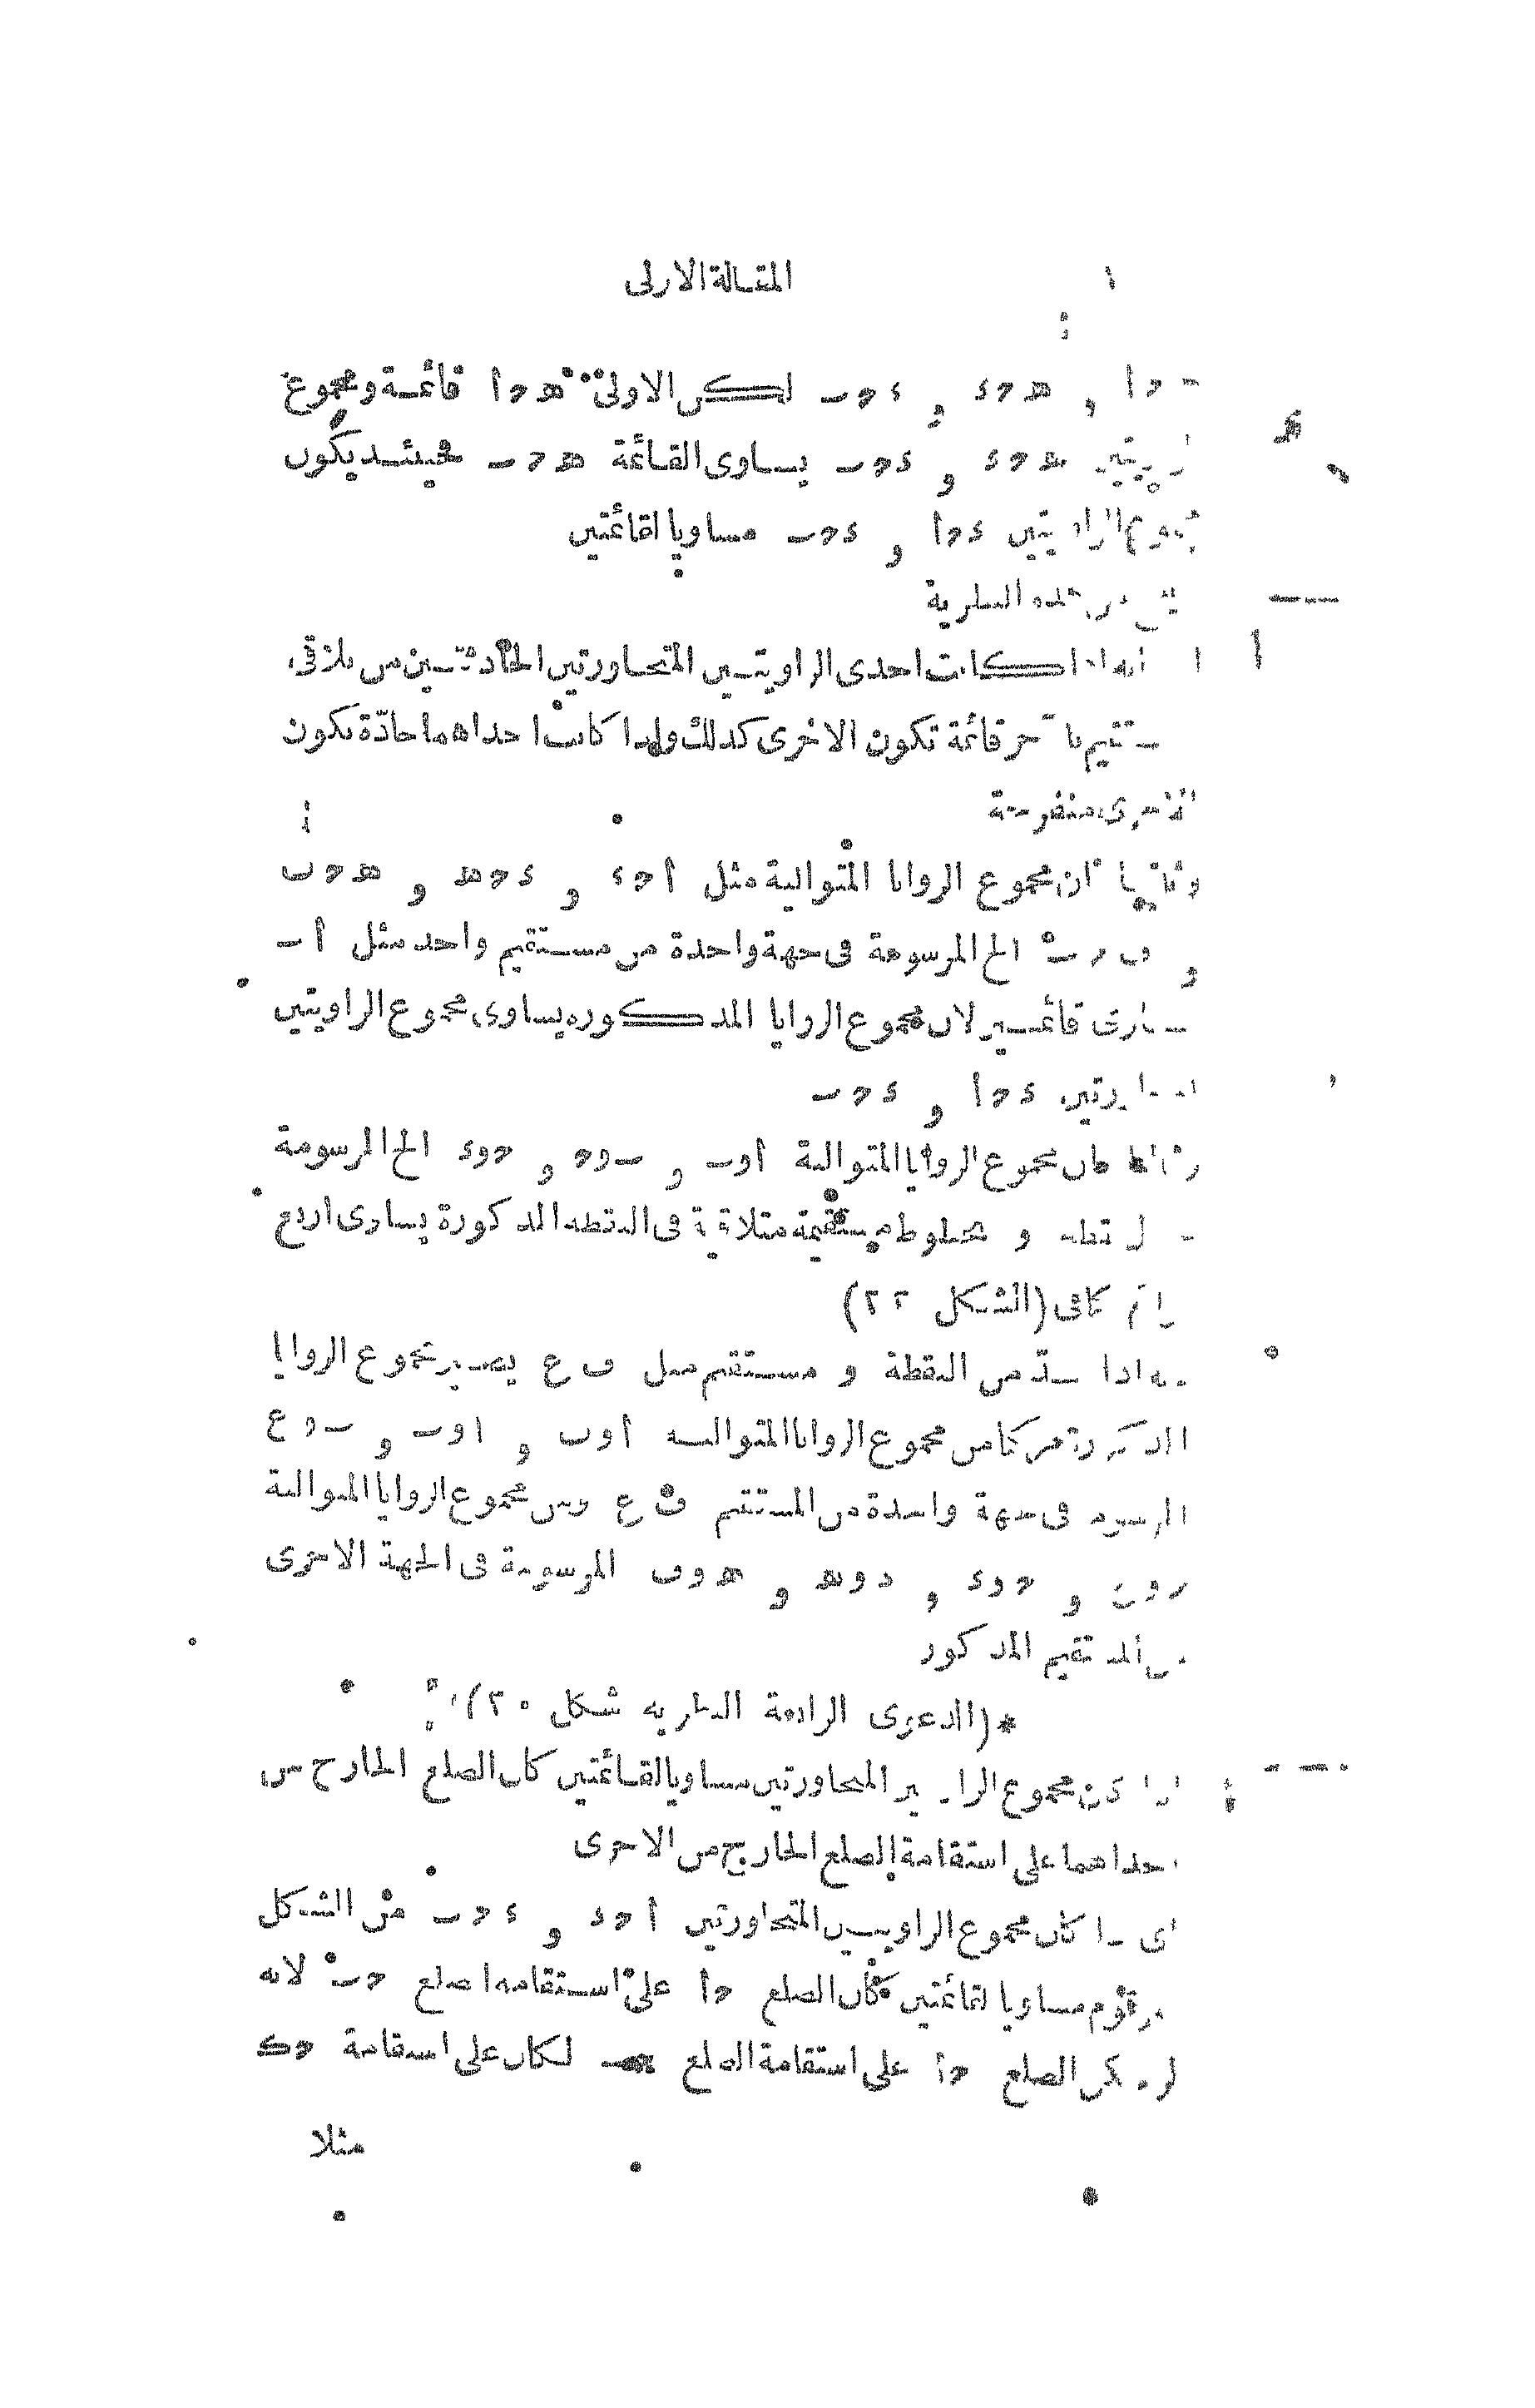 المقالة الاولى
حدأ و هحء و ءحب لكن الاولى هحأ قائمة ومجموع
هحء و ءحب يساوى القائمة هحب فحينئذ يكون
مجموع الزاويتين ءحأ و ءحب مساويا لقائمتين
هذه النظرية
كانت احدى الزاويتين المتجاورتين الحادثتين من تلاقى
مستقيم باخر قائمة تكون الاخرى كذلك واذا كانت احداهما حادّة تكون
الاخرى منفرجة
وثانيها ان مجموع الزوايا المتوالية مثل أحء و ءحه و هحف
و الخ المرسومة فى جهة واحدة من مستقيم واحد مثل أب
يساوى قائمتين لان مجموع الزوايا المذكوره يساوى مجموع الزاويتين
المتجاورتين ءحأ و ءحب
مجموع الزوايا المتوالية أوب و بوح و حوء الخ المرسومة
و بخطوط مستقيمة متلاقية فى النقطه المذكورة يساوى اربع
كما فى (الشكل ٢٢)
اذا مدّ من النقطة و مستقيم مثل ف ع يصير مجموع الزوايا
مركبا من مجموع الزوايا المتواليه أوف و أوب و بوع
المرسومه فى جهة واحدة من المستقيم ف ع ومن مجموع الزوايا المتوالية
و حوء و دوه و هوف المرسومة فى الجهة الاخرى
من المستقيم المذكور
*(الدعوى الرابعة النظريه شكل ٢٠)
اذا كان مجموع الزاويتين المتجاورتين مساويا لقائمتين كان الضلع الخارج من
احداهما على استقامة الضلع الخارج من الاخرى
اى اذا كان مجموع الزاويتين المتجاورتين أحء و ءحب من الشكل
المرقوم مساويا لقائمتين كان الضلع حأ على استقامه الضلع حب لانه
لو لم يكن الضلع حأ على استقامة الضلع حب لكان على استقامة حك
مثلا